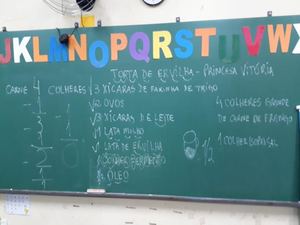 JKLMNOPQRSTUVWX
TORTA DE ERVILHA - PRINCESA VITÓRIA
CARNE
COLHERES
3 XÍCARAS DE FARINHA DE TRIGO
2 OVOS
3 XÍCARAS DE LEITE
1 LATA MILHO
1 LATA DE ERVILHA
1 COLHER FERMENTO
ÓLEO
4 COLHERES GRANDE
DE CARNE DE FRANGO
1/2
1 COLHER